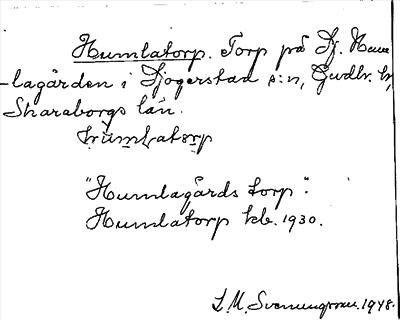 Humlatorp. Torp på Lj. Hum
-lagården i Ljogerstad s:n, Gudh. hd,
Skaraborgs län.
humlatorp
"Humlagårds torp".
Humlatorp kb. 1930.
L.M. Svenungsson. 1948.